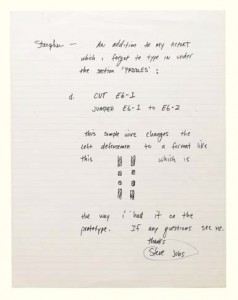 Stephen — An addition to my report
which i forgot to type in under
the section 'PADDLES';
d. CUT E6-1
JUMPER E6-1 to E6-2
this simple wire changes the
to a format like
this which is
the way i had it on the
prototype. If any questions see me.
thanks
Steve Jobs